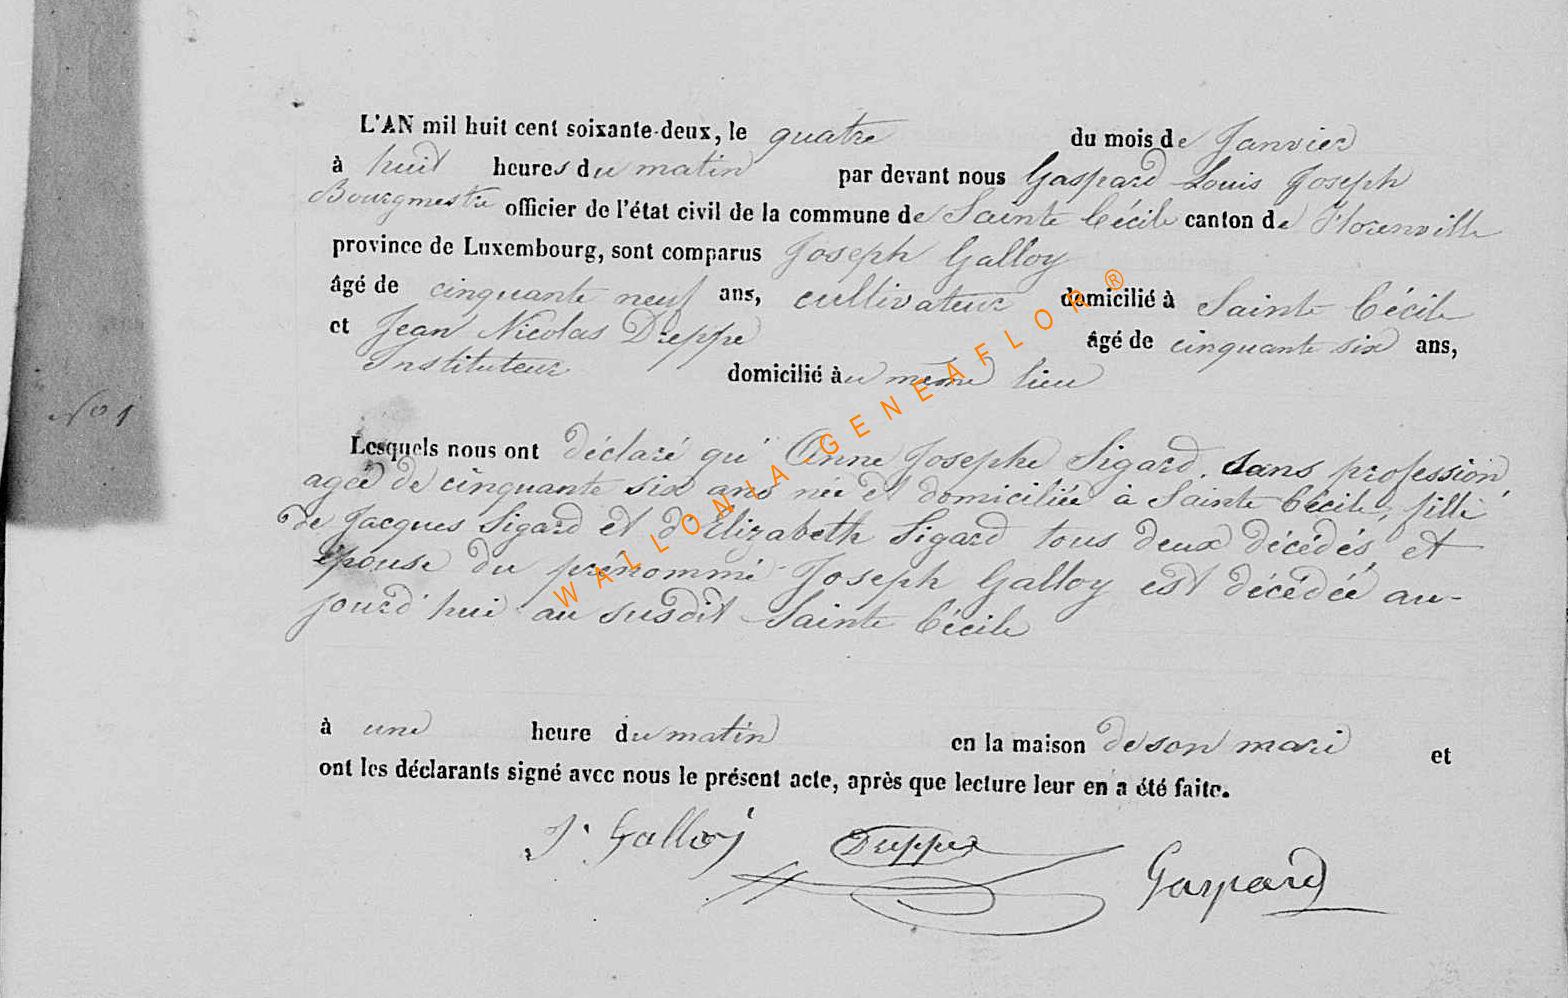 L'AN mil huit cent soixante-deux, le quatre du mois de Janvier
à huit heures du matin par devant nous Gaspard Louis Joseph
Bourgmestre officier de l'état civil de la commune de Sainte Cécile canton de Florenville
province de Luxembourg, sont comparus Joseph Galloy
âgé de cinquante neuf ans, cultivateur domicilié à Sainte Cécile
et Jean Nicolas Dreppe âgé de cinquante six ans,
Instituteur domicilié au même lieu
No 1
Lesquels nous ont déclaré qu'Anne Josephe Sigard, sans profession,
agée de cinquante six ans née et domiciliée à Sainte Cécile, fille
de Jacques Sigard et d'Elizabeth Sigard tous deux décédés, et
épouse du prénommé Joseph Galloy est décédée au-
jourd'hui au susdit Sainte Cécile
à une heure du matin en la maison de son mari et
ont les déclarants signé avec nous le présent acte, après que lecture leur en a été faite.
J. Galloy Dreppe Gaspard
WALLONIA GENEAFLOR ®